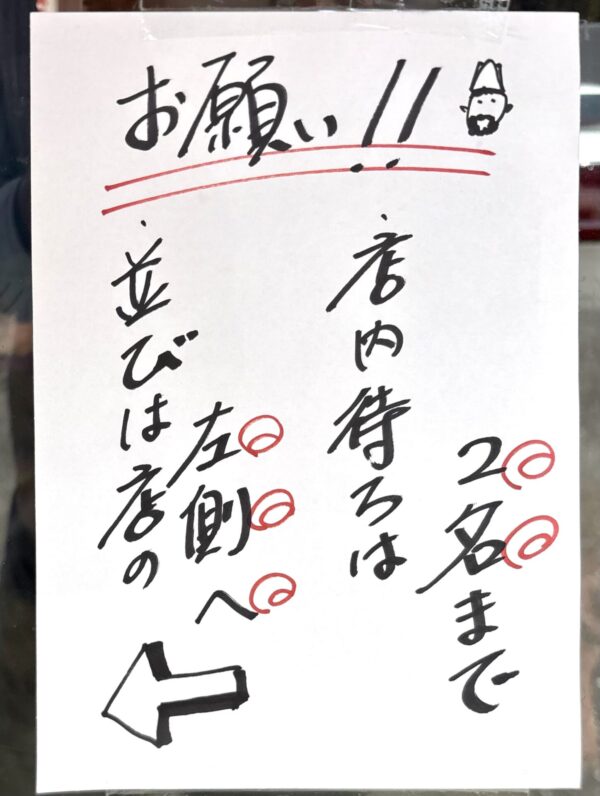 お願い!!
・店内待ちは
2名まで
・並びは店の
左側へ